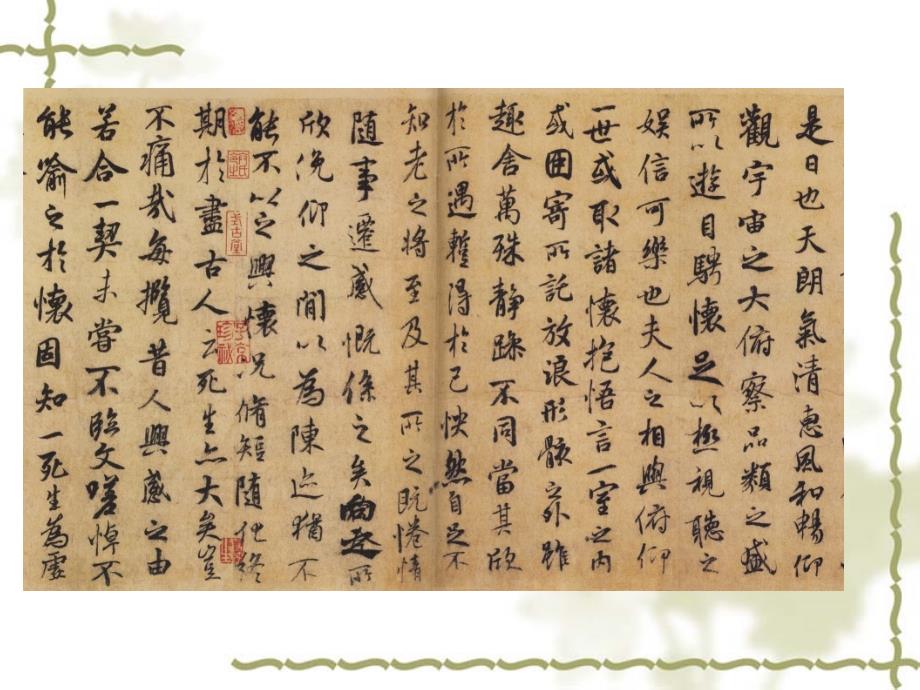 是日也天朗氣清惠風和暢仰
觀宇宙之大俯察品類之盛
所以遊目騁懷足以極視聽之
娛信可樂也夫人之相與俯仰
一世或取諸懷抱悟言一室之內
或因寄所託放浪形骸之外雖
趣舍萬殊靜躁不同當其欣
於所遇蹔得於己怏然自足不
知老之將至及其所之既惓情
隨事遷感慨係之矣向之所
欣俛仰之閒以為陳迹猶不
能不以之興懷況脩短隨化終
期於盡古人云死生亦大矣豈
不痛哉每攬昔人興感之由
若合一契未嘗不臨文嗟悼不
能喻之於懷固知一死生為虛
式古堂